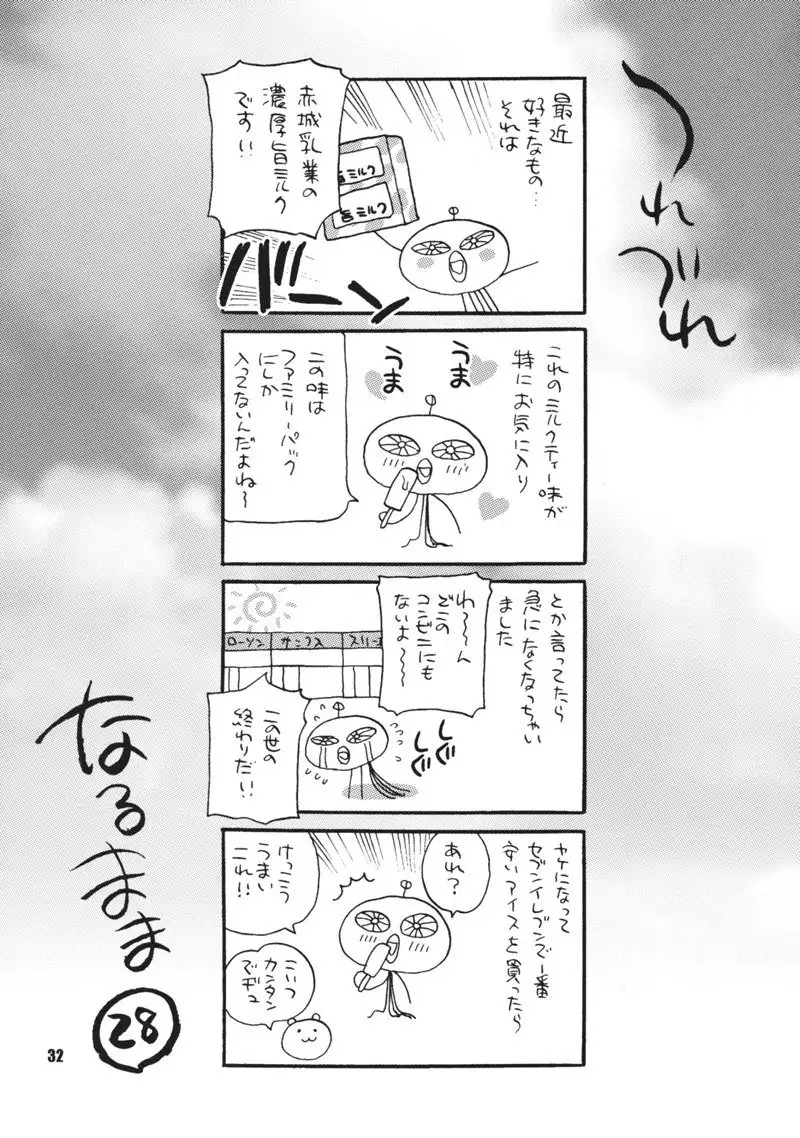 つれづれ
なるまま
28
最近
好きなもの…
それは
赤城乳業の
濃厚旨ミルク
ですい
旨ミルク
旨ミルク
バーン
これのミルクティー味が
特にお気に入り
うま
うま
この味は
ファミリーパック
にしか
入ってないんだよね～
とか言ってたら
急になくなっちゃい
ました
わ～～ん
どこの
コンビニにも
ないよ～～
ローソン
サンクス
スリーエ
しぐ
しぐ
この世の
終わりだい!
ヤケになって
セブンイレブンで一番
安いアイスを買ったら
あれ?
けっこう
うまい
これ!!
こいつ
カンタン
でヂュ
32